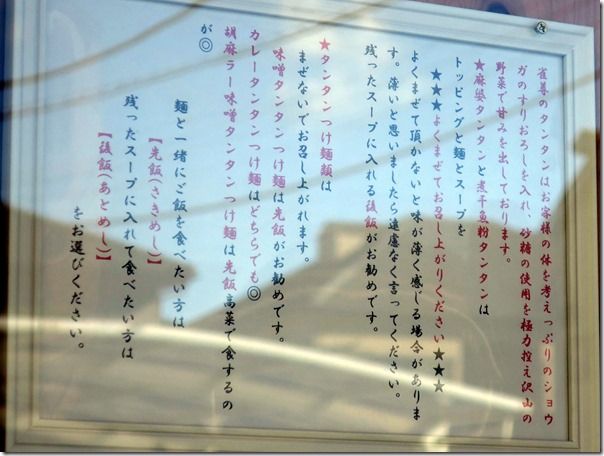 雀尊のタンタンはお客様の体を考えっぷりのショウ
ガのすりおろしを入れ、砂糖の使用を極力控え沢山の
野菜で甘みを出しております。
★麻婆タンタンと煮干魚粉タンタンは
トッピングと麺とスープを
★★★よくまぜてお召し上がりください★★★
よくまぜて頂かないと味が薄く感じる場合がありま
す。薄いと思いましたら遠慮なく言ってください。
残ったスープに入れる後飯がお勧めです。
★タンタンつけ麺類は
まぜないでお召し上がれます。
味噌タンタンつけ麺は先飯がお勧めです。
カレータンタンつけ麺はどちらでも◎
胡麻ラー味噌タンタンつけ麺は先飯高菜で食するの
が◎
麺と一緒にご飯を食べたい方は
【先飯(さきめし)】
残ったスープに入れて食べたい方は
【後飯(あとめし)】
をお選びください。